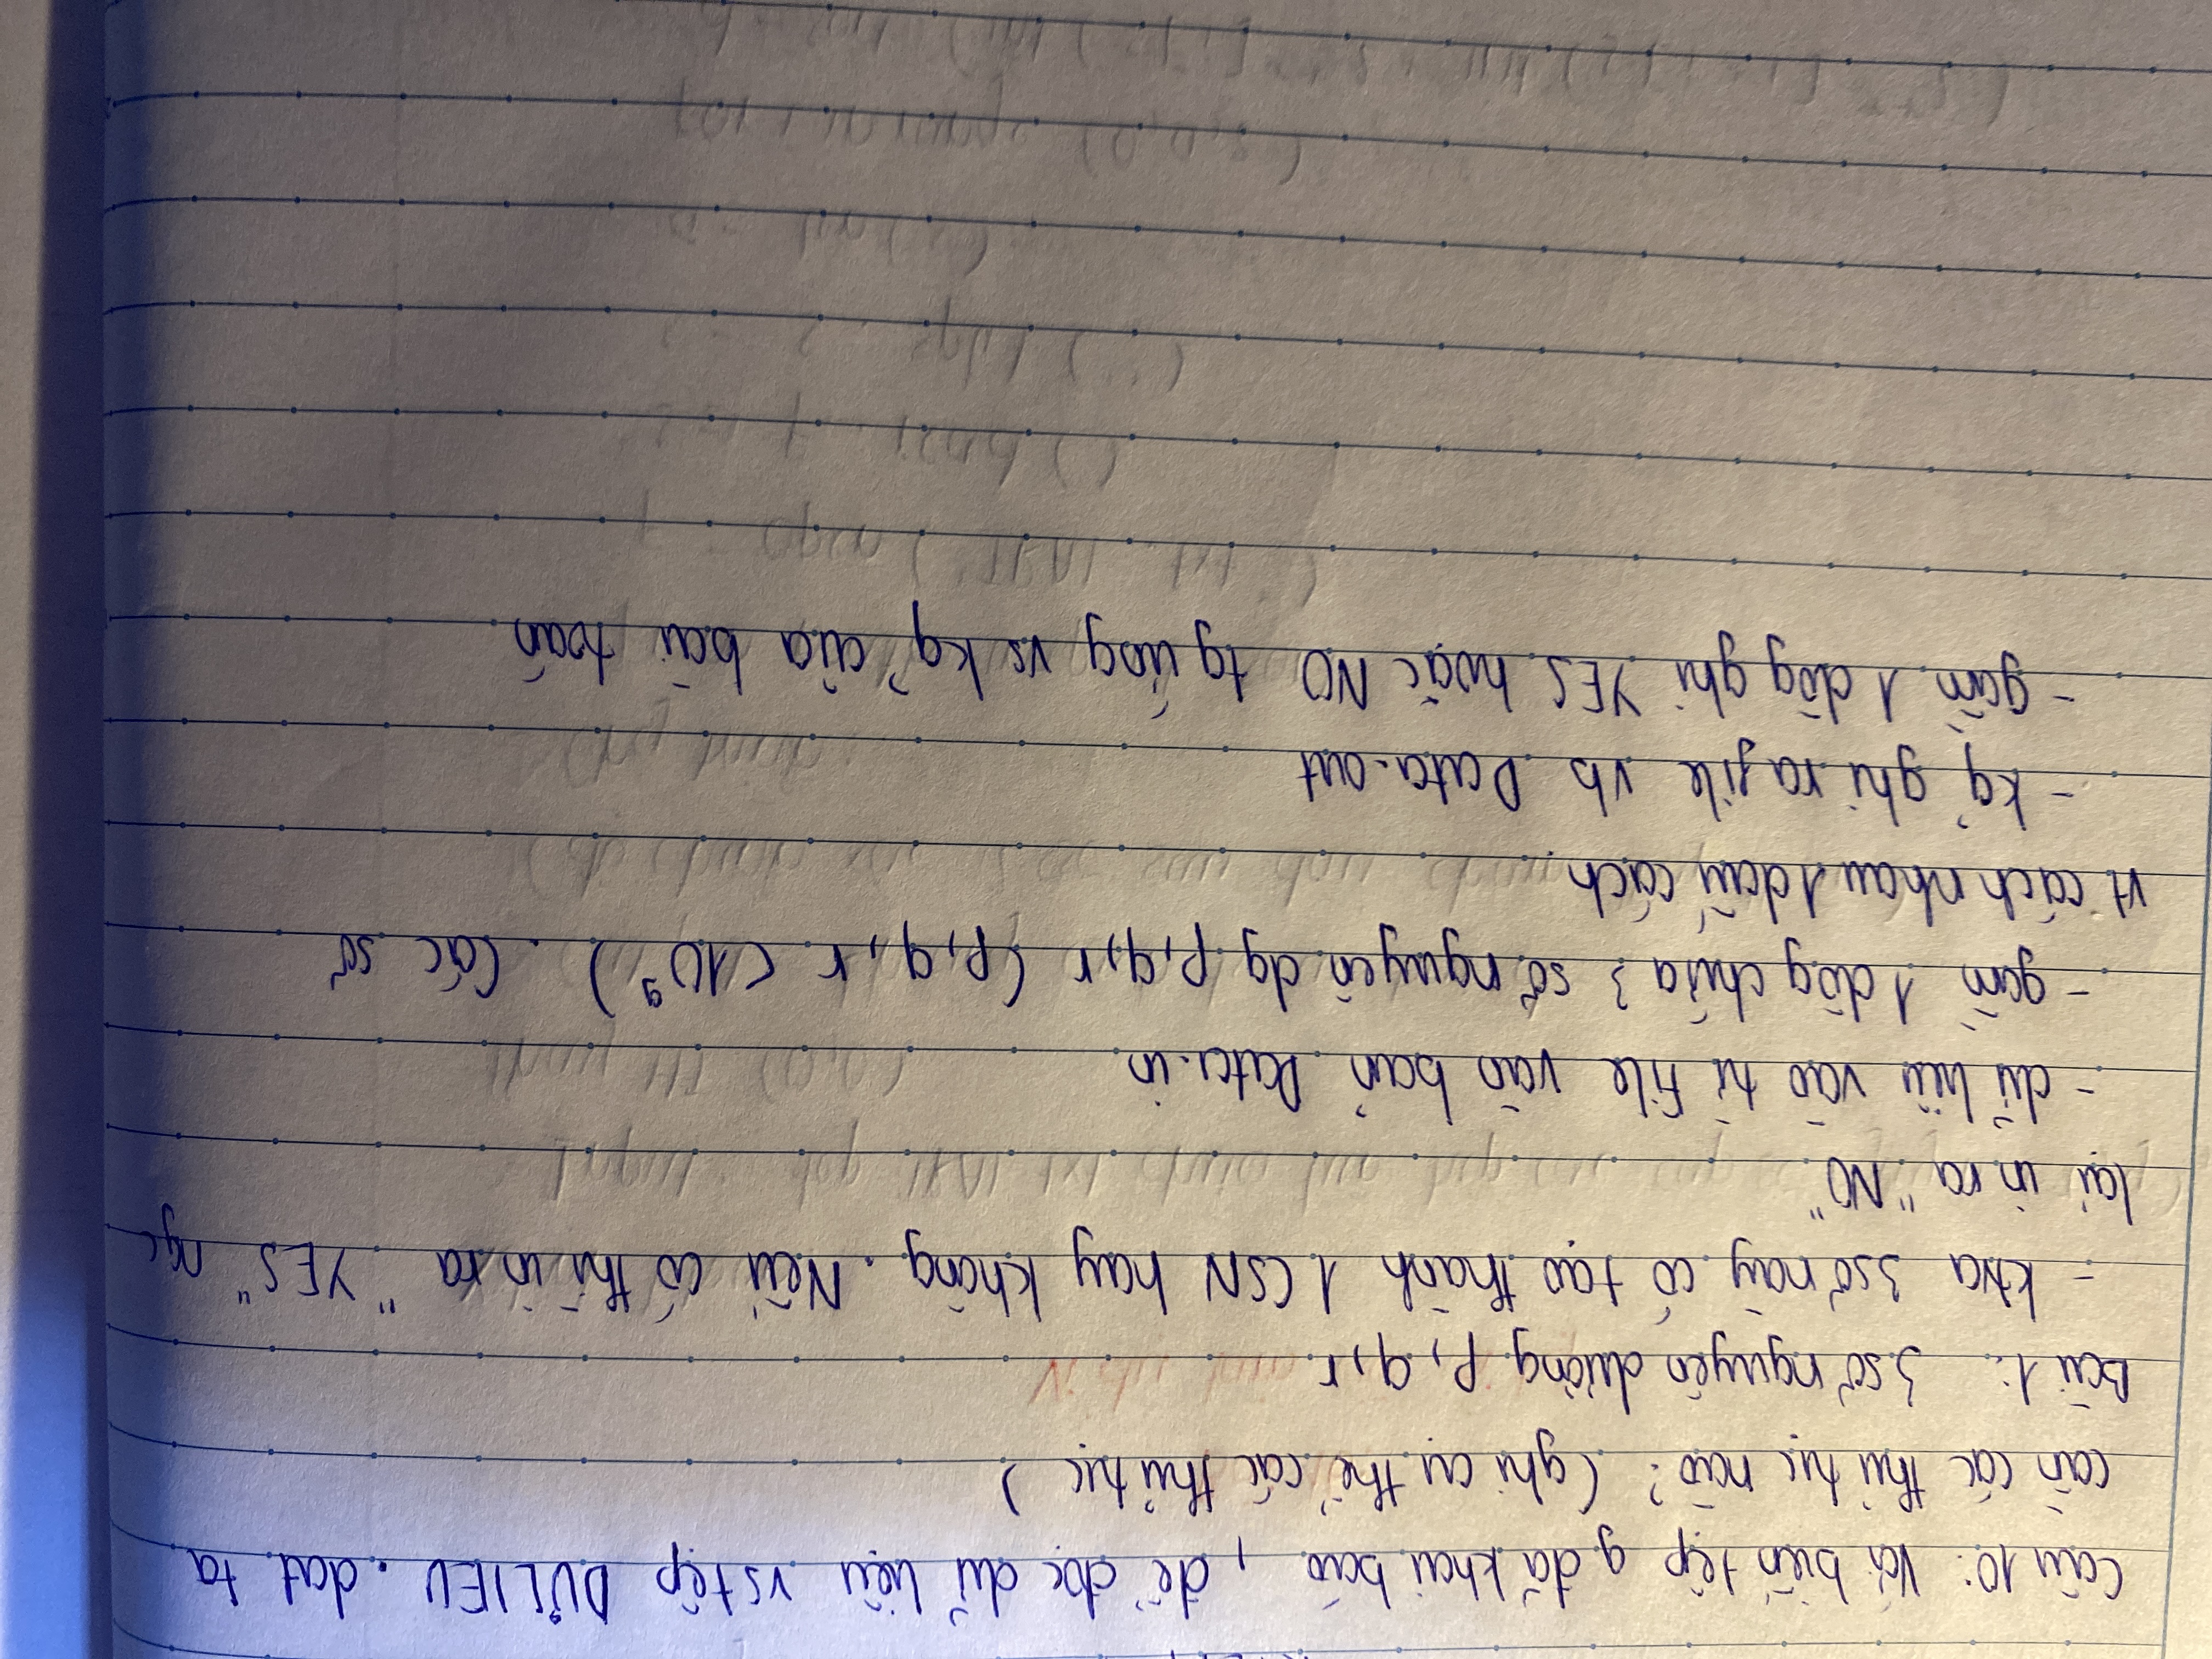 Câu 10: Với biến tệp g đã khai báo, để đọc dữ liệu vs tệp DULIEU.dat ta
cần các thủ tục nào? (ghi cụ thể các thủ tục)
Bài 1: 3 số nguyên dương p, q, r
- ktra 3 số này có tạo thành 1 CSN hay không. Nếu có thì in ra "YES" ngc
lại in ra "NO"
- dữ liệu vào từ File văn bản Data.in
- gồm 1 dòg chứa 3 số nguyên dg p, q, r (p, q, r < 10⁹). Các số
vt cách nhau 1 dấu cách
- kq' ghi ra file vb Data.out
- gồm 1 dòg ghi YES hoặc NO tg ứng vs kq' của bài toán